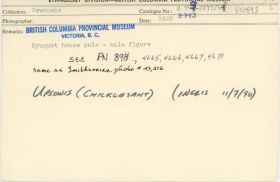 ETHNOLOGY DIVISION—BRITISH COLUMBIA PROVINCIAL MUSEUM
Collection: Newcombe
Catalogue No.:
PN893
Photographer:
Date:
Remarks: BRITISH COLUMBIA PROVINCIAL MUSEUM
VICTORIA, B. C.
Kyuquot house pole - male figure
SEE PN 894, 4665, 4666, 4667, 4671
same as Smithsonian photo #
UPSOWIS (CHICKLESAHT) (INGLIS 11/7/90)